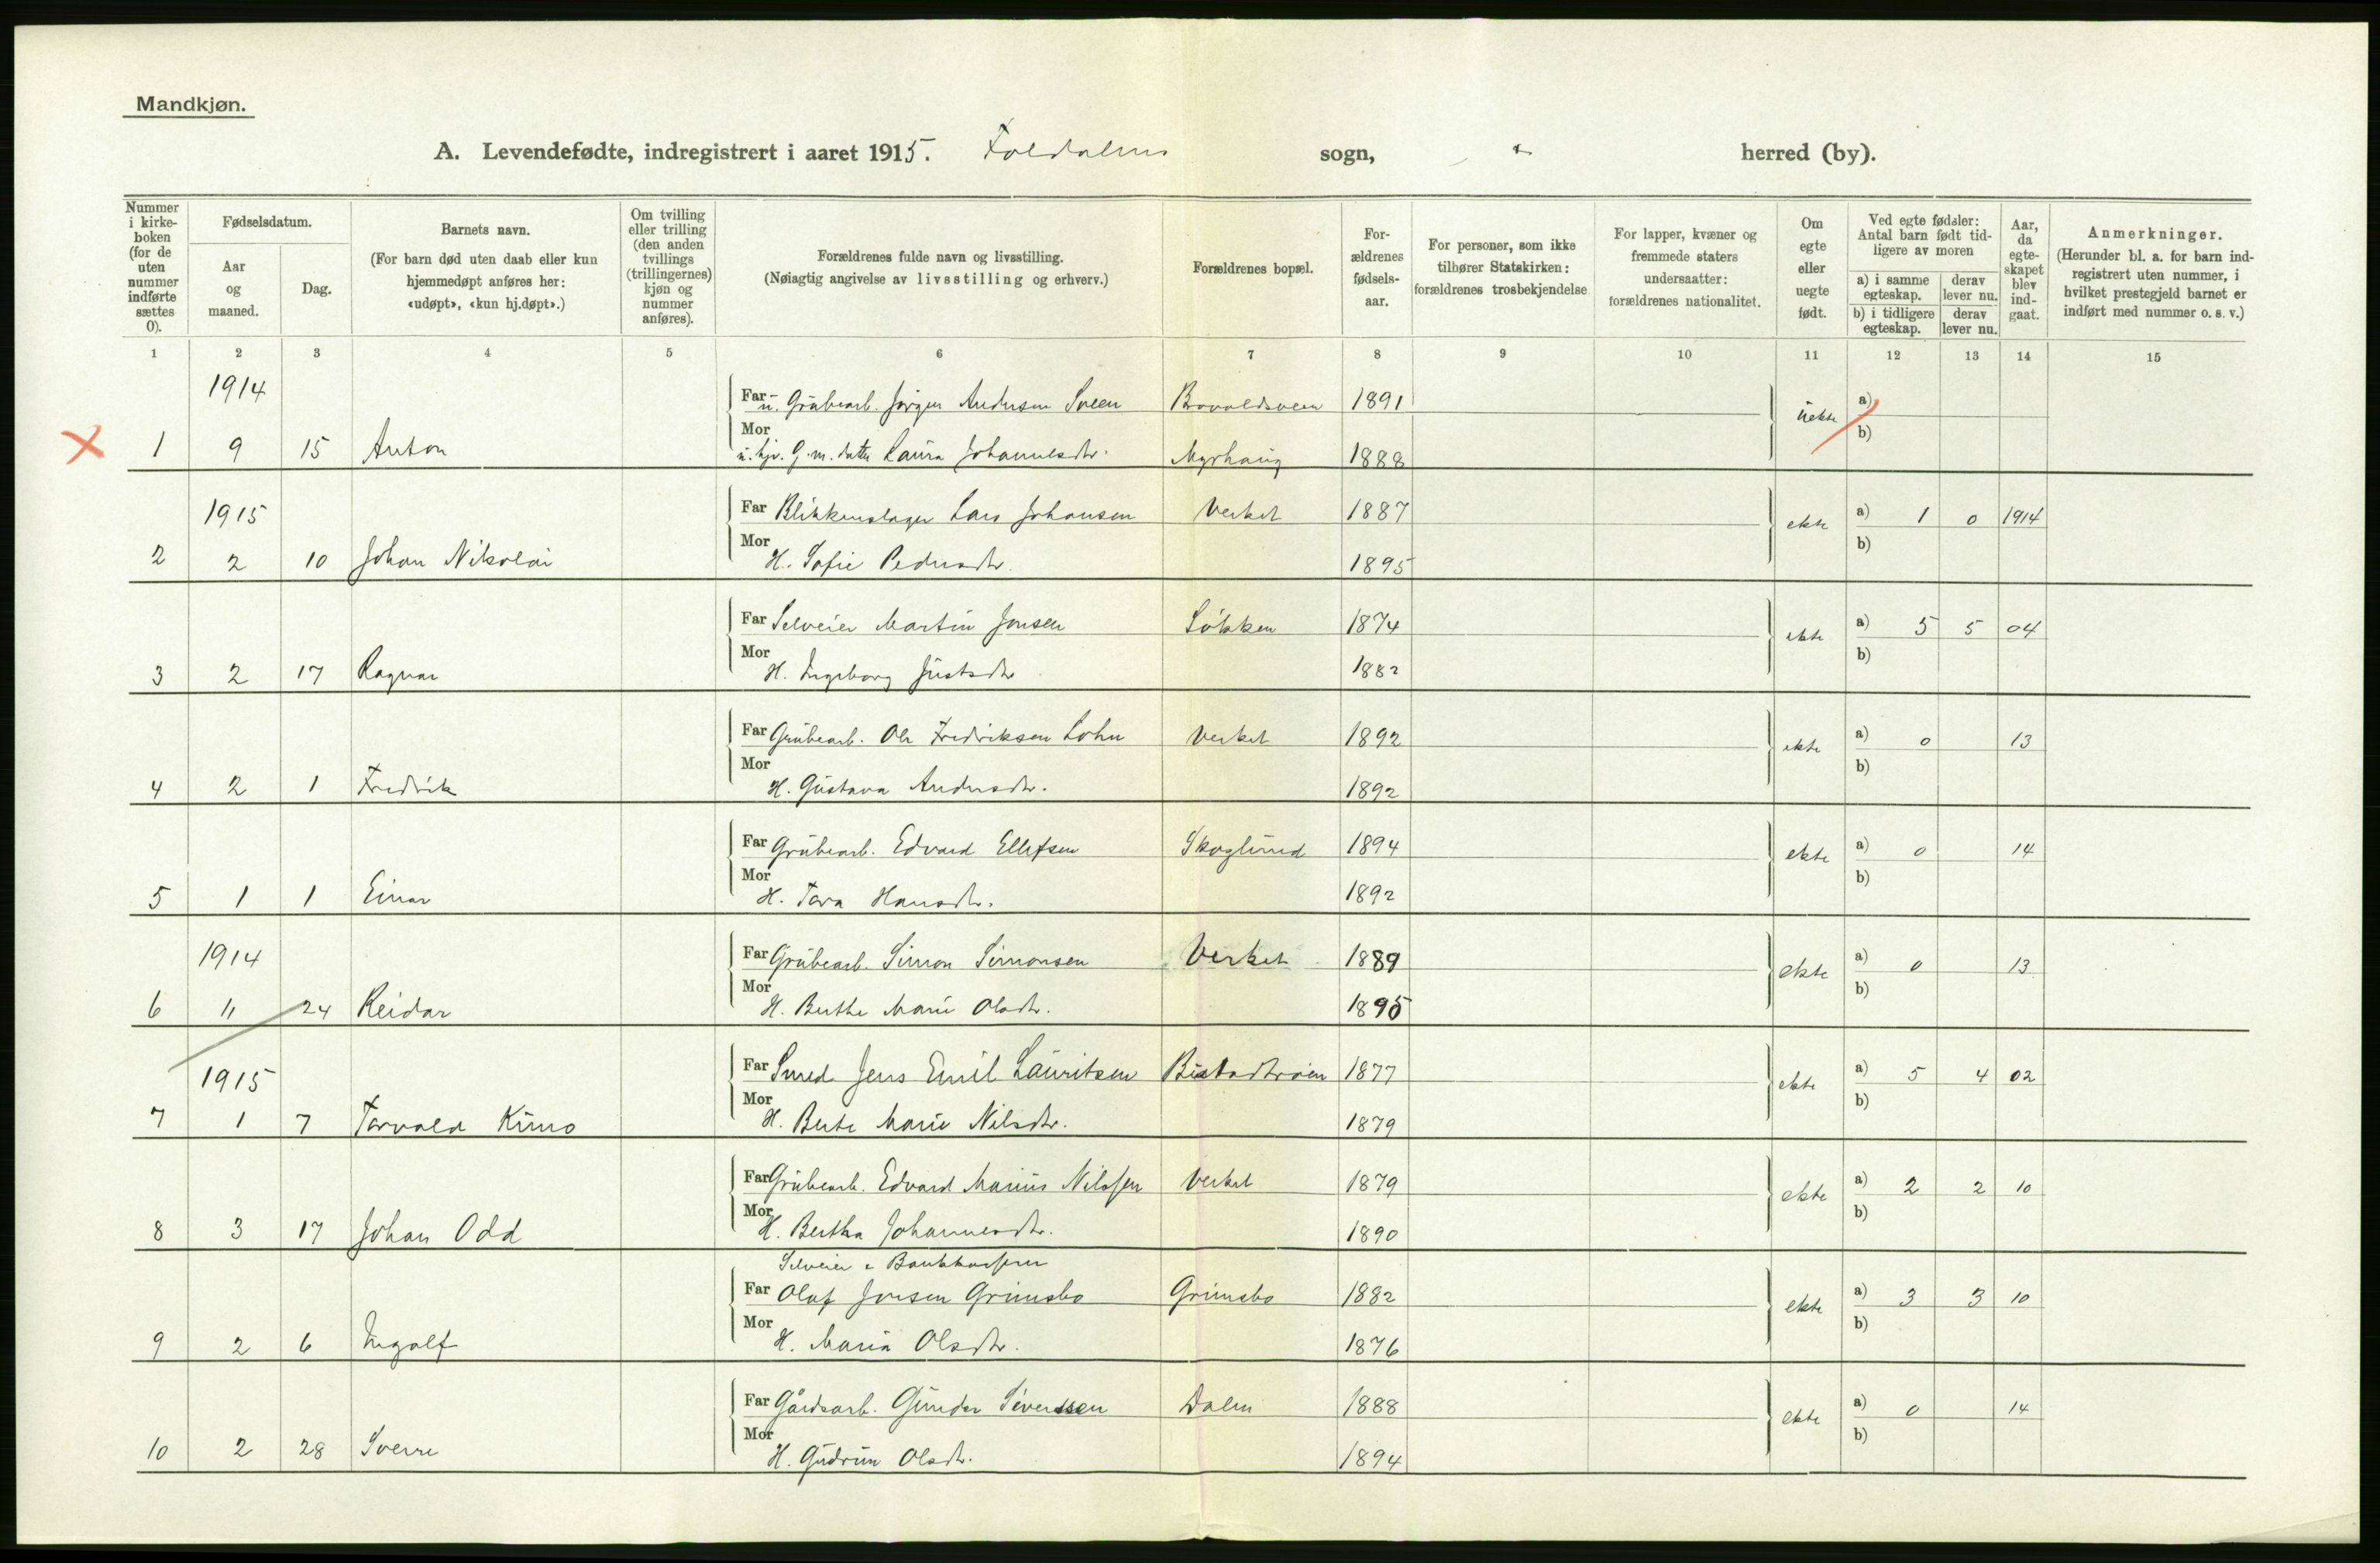 Mandkjøn.
A. Levendefødte, indregistrert i aaret 1915. Foldalens sogn, herred (by).
Nummer i kirkeboken (for de uten nummer indførte sættes 0).
Fødselsdatum.
Aar og maaned.
Dag.
Barnets navn.
(For barn død uten daab eller kun hjemmedøpt anføres her: «udøpt», «kun hj.døpt».)
Om tvilling eller trilling (den anden tvillings (trillingernes) kjøn og nummer anføres).
Forældrenes fulde navn og livsstilling.
(Nøiagtig angivelse av livsstilling og erhverv.)
Forældrenes bopæl.
Forældrenes fødselsaar.
For personer, som ikke tilhører Statskirken: forældrenes trosbekjendelse
For lapper, kvæner og fremmede staters undersaatter: forældrenes nationalitet.
Om egte eller uegte født.
Ved egte fødsler: Antal barn født tidligere av moren
a) i samme egteskap. derav lever nu.
b) i tidligere egteskap. derav lever nu.
Aar, da egteskapet blev indgaat.
Anmerkninger.
(Herunder bl. a. for barn indregistrert uten nummer, i hvilket prestegjeld barnet er indført med nummer o. s. v.)
1 2 3 4 5 6 7 8 9 10 11 12 13 14 15
1914 Far u. Grubearb. Jørgen Andersen 1891 uekte a)
X 1 9 15 Anton Mor u. hjv. G.m. datter Laura Johannesdtr. Myrhaug 1888 b)
1915 Far Blikkenslager Lars Johansen Verket 1887 ekte a) 1 0 1914
2 2 10 Johan Nikolai Mor H. Sofie Pedersdtr. 1895 b)
Far Selveier Martin Jonsen Løkken 1874 ekte a) 5 5 04
3 2 17 Ragnar Mor H. Ingeborg Justsdtr 1882 b)
Far Grubearb. Ole Fredriksen Lohn Verket 1892 ekte a) 0 13
4 2 1 Fredrik Mor H. Gustava Andersdtr. 1892 b)
Far Grubearb. Edvard Ellefsen Skoglund 1894 ekte a) 0 14
5 1 1 Einar Mor H. Tora Hansdtr. 1892 b)
1914 Far Grubearb. Simon Simonsen Verket 1889 ekte a) 0 13
6 11 24 Reidar Mor H. Berthe Marie Olsdtr. 1895 b)
1915 Far Smed Jens Emil Lauritsen 1877 ekte a) 5 4 02
7 1 7 Torvald Mor H. Berte Marie Nilsdtr. 1879 b)
Far Grubearb. Edvard Marius Nilssen Verket 1879 ekte a) 2 2 10
8 3 17 Johan Odd Mor H. Bertha Johannesdtr. 1890 b)
Selveier & Bankkasserer
Far Olaf Jonsen Grimsbo Grimsbo 1882 ekte a) 3 3 10
9 2 6 Ingolf Mor H. Maria Olsdtr. 1876 b)
Far Gårdsarb. Gunder Siverssen Dalen 1888 ekte a) 0 14
10 2 28 Sverre Mor H. Gudrun Olsdtr. 1894 b)